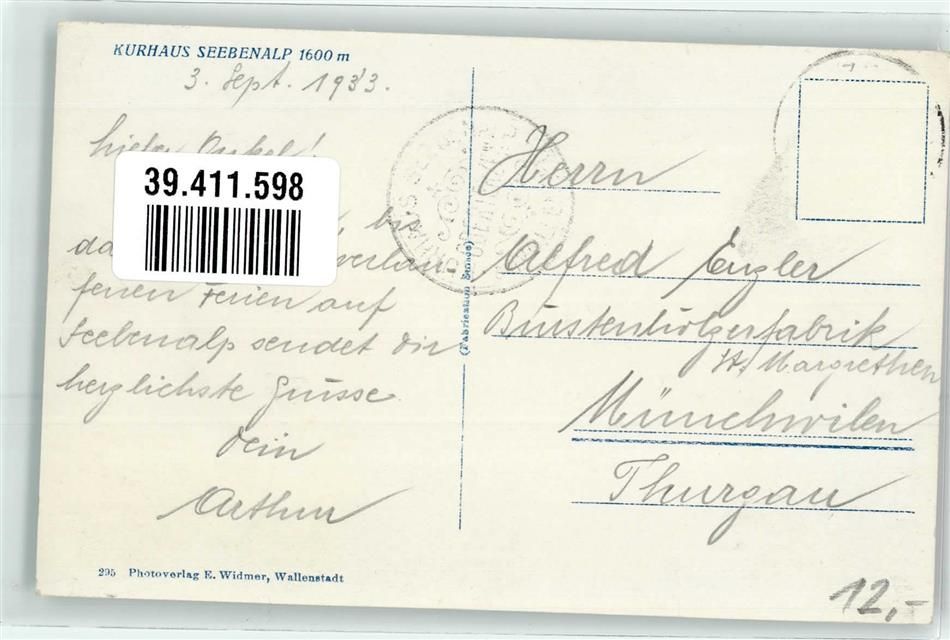 KURHAUS SEEBENALP 1600 m
3. Sept. 1933.
Lieber Onkel!
39.411.598
bis
verlau-
fenen Ferien auf
Seebenalp sendet Dir
herzlichste Grüsse
Dein
Arthur
(Fabrication Suisse)
Herrn
Alfred Enzler
Bürstenhölzerfabrik
St. Margrethen
Münchwilen
Thurgau
295 Photoverlag E. Widmer, Wallenstadt
12,-